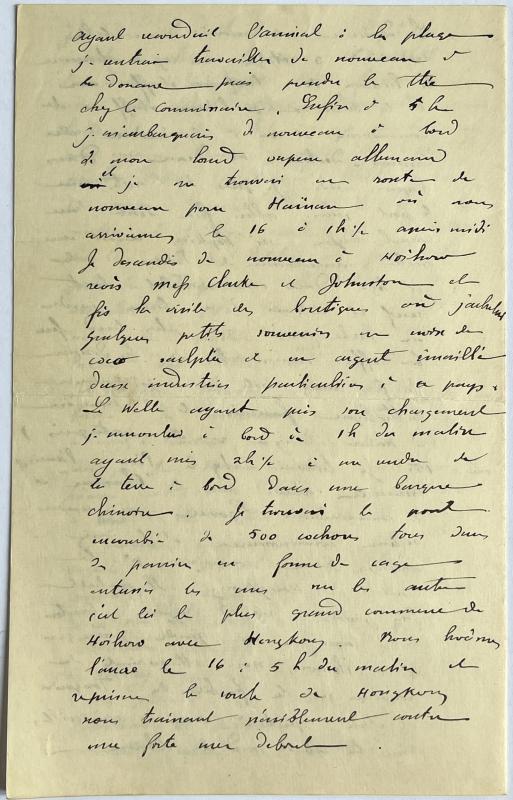 ayant reconduit l'amiral à la plage
je rentrai travailler de nouveau à
la Douane puis prendre le thé
chez le Commissaire. Enfin à 5 h
je m'embarquais de nouveau à bord
de mon lourd vapeur allemand
et je me trouvai en route de
nouveau pour Haïnan où nous
arrivâmes le 16 à 1h ½ après midi
Je descendis de nouveau à Hoïhow
revis Mess Clarke et Johnston et
fis la visite des boutiques où j'achetai
quelques petits souvenirs en noix de
coco sculptée et en argent émaillé
deux industries particulières à ce pays.
Le Welle ayant pris son chargement
je remontai à bord à 1h du matin
ayant mis 2h ½ à me rendre de
la terre à bord dans une barque
chinoise. Je trouvai le pont
encombré de 500 cochons tous dans
des paniers en forme de cage
entassés les uns sur les autres
c'est là le plus grand commerce de
Hoïhow avec Hongkong. Nous levâmes
l'ancre le 16 à 5 h du matin et
reprîmes la route de Hongkong
nous trainant péniblement contre
une forte mer debout.